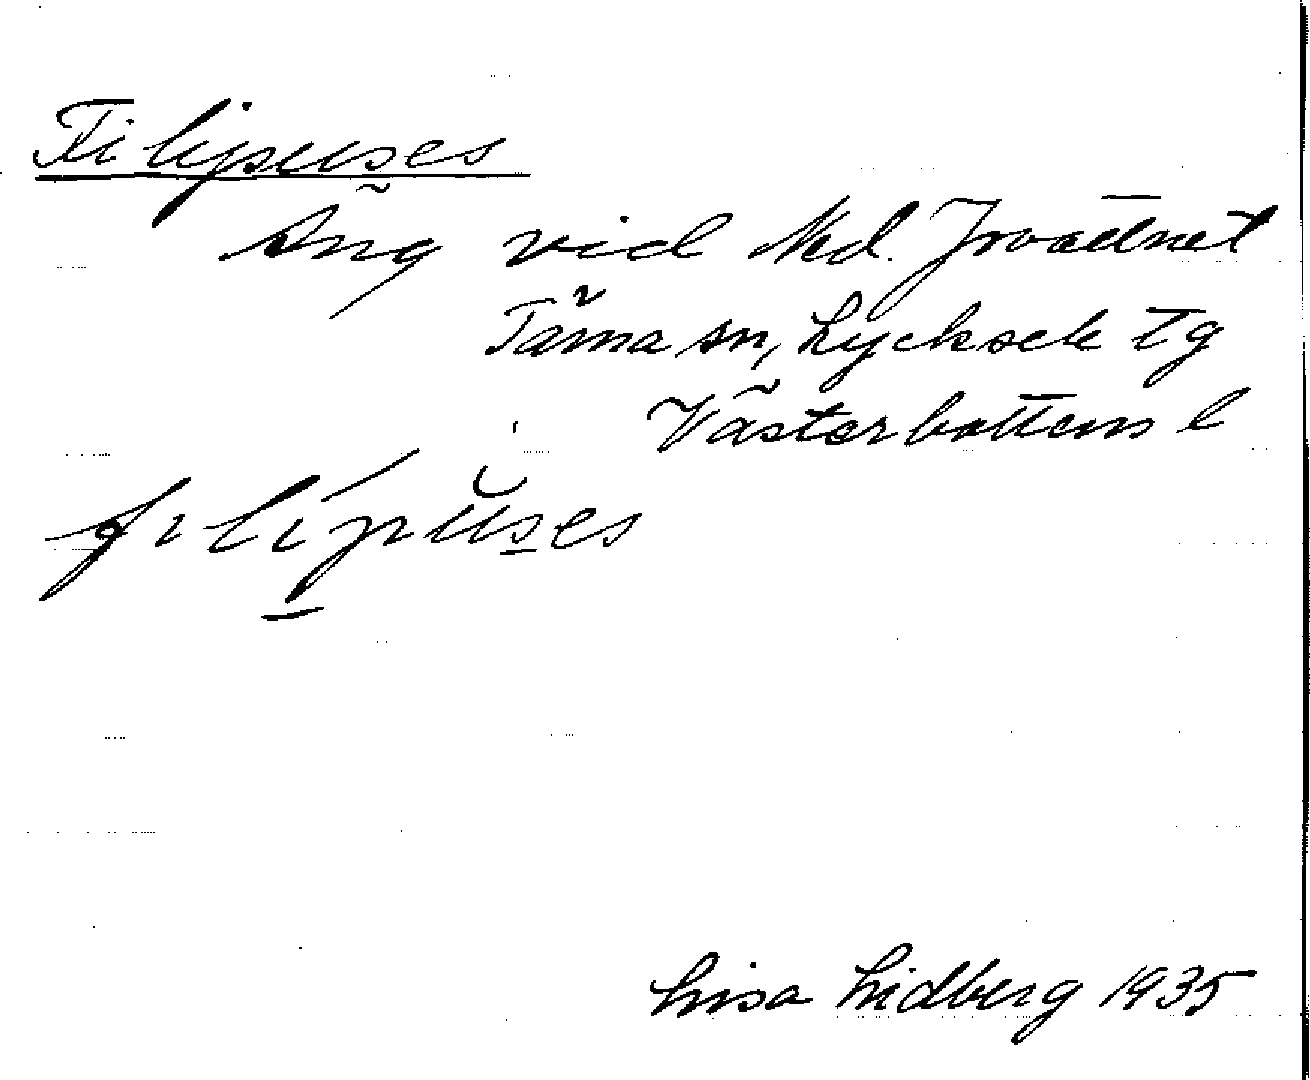 Filipuses
Äng vid Ned. Jovattnet
Tärna sn, Lycksele tg
Västerbottens l
filipuses
Lisa Lidberg 1935